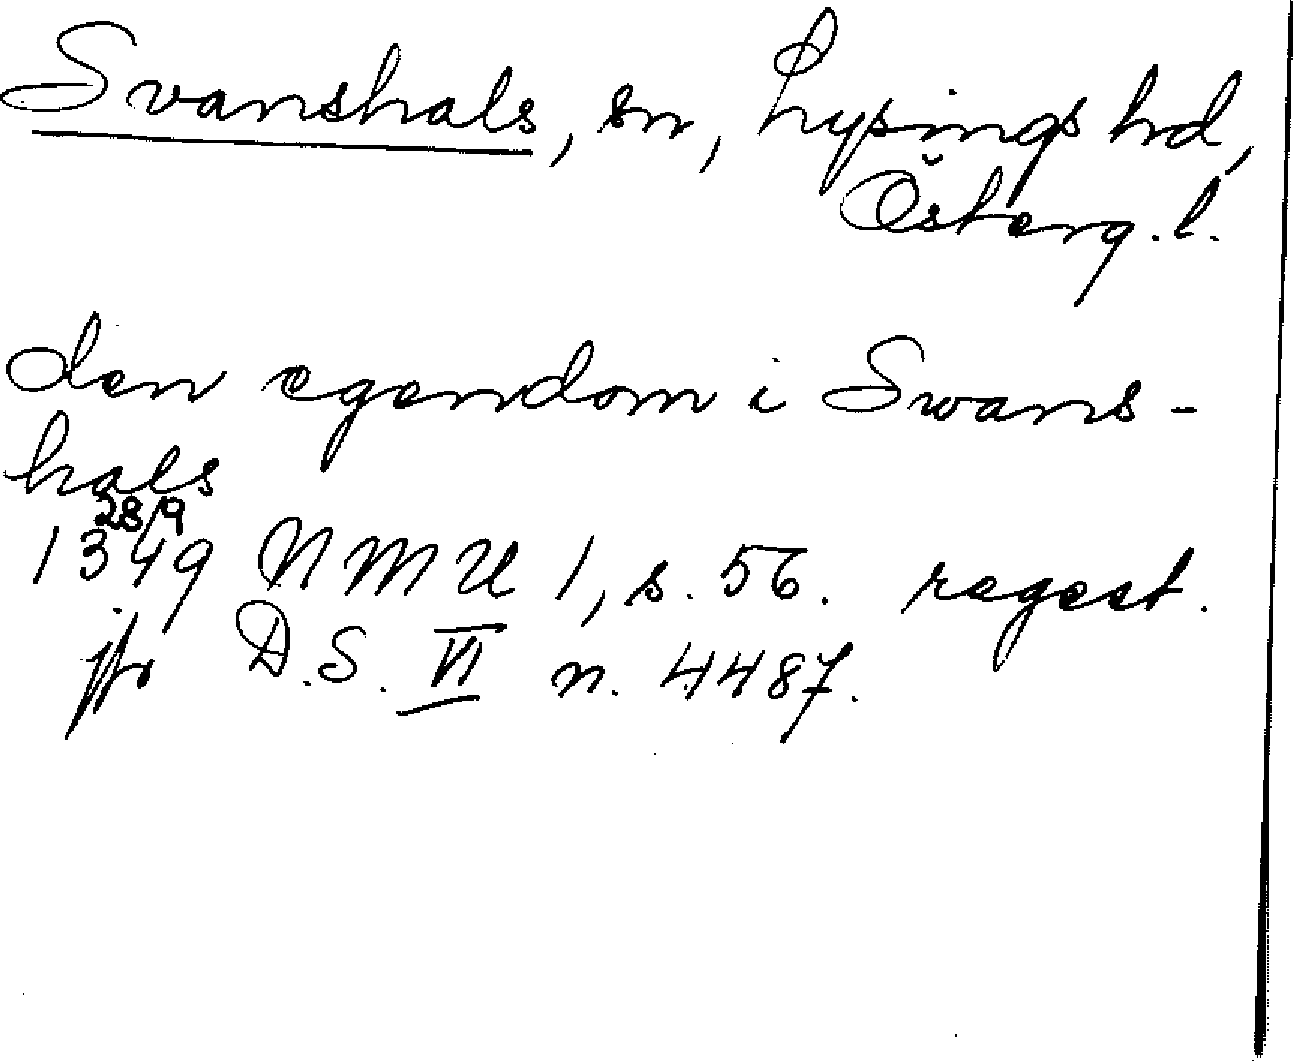 Svanshals, sn, Lysings hd,
Österg. l.
den egendom i Swans-
hals
28/9
1349 NMU 1, s. 56. regest.
jfr D.S. VI n. 4487.